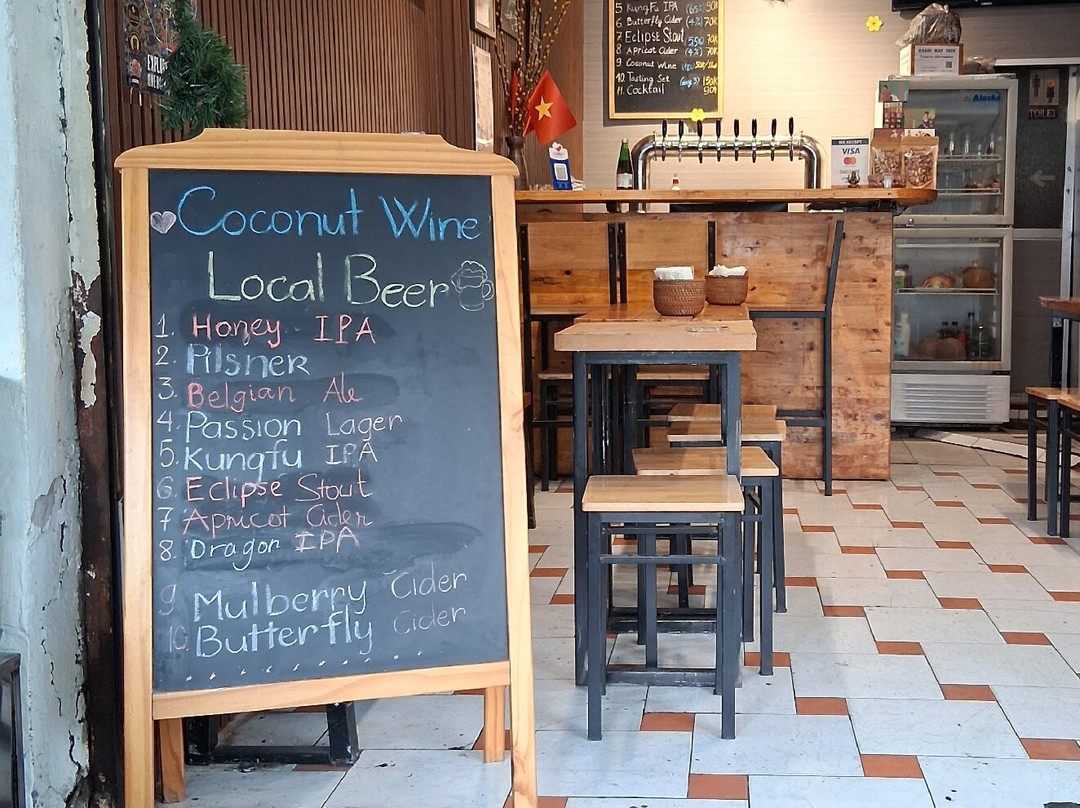 Coconut Wine
Local Beer
1. Honey IPA
2. Pilsner
3. Belgian Ale
4. Passion Lager
5. Kungfu IPA
6. Eclipse Stout
7. Apricot Cider
8. Dragon IPA
9 Mulberry Cider
10 Butterfly Cider
5 KungFu IPA (6%) 90K
6 Butterfly Cider (4%) 70K
7 Eclipse Stout 70K
8 Apricot Cider (4%) 70K
9 Coconut Wine
10. Tasting Set 150K
11. Cocktail 90K
EXPLORE
WE ACCEPT
VISA
Alaska
TOILET